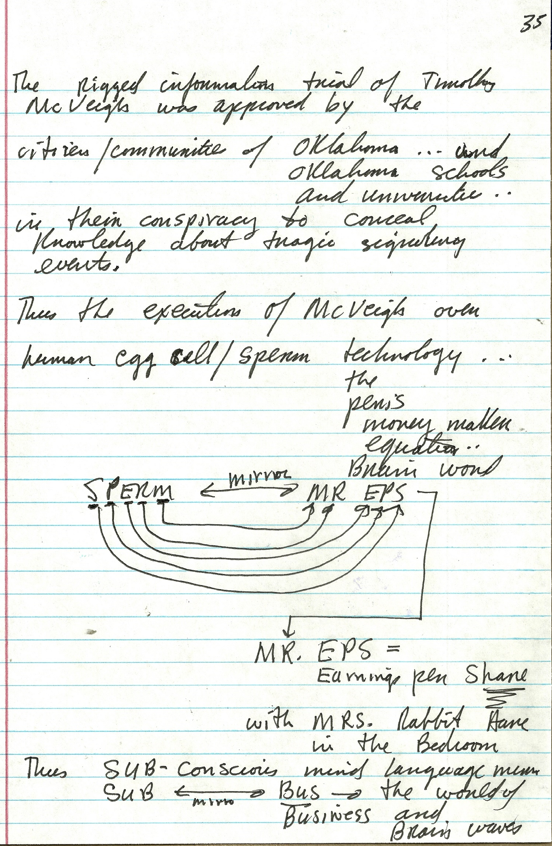 35
The rigged information trial of Timothy
McVeigh was approved by the
citizen/communitie of OKlahoma ... and
OKlahoma schools
and universitie ..
in their conspiracy to conceal
Knowledge about tragic signaling
events.
Thus the execution of McVeigh over
human egg cell/sperm technology ...
the
penis
money maker
equation..
Brain word
SPERM mirror MR EPS
MR. EPS =
Earnings per Share
with MRS. Rabbit Hare
in the Bedroom
Thus SUB-Conscious mind language mean
SUB mirro Bus → the world of
Business and
Brain waves